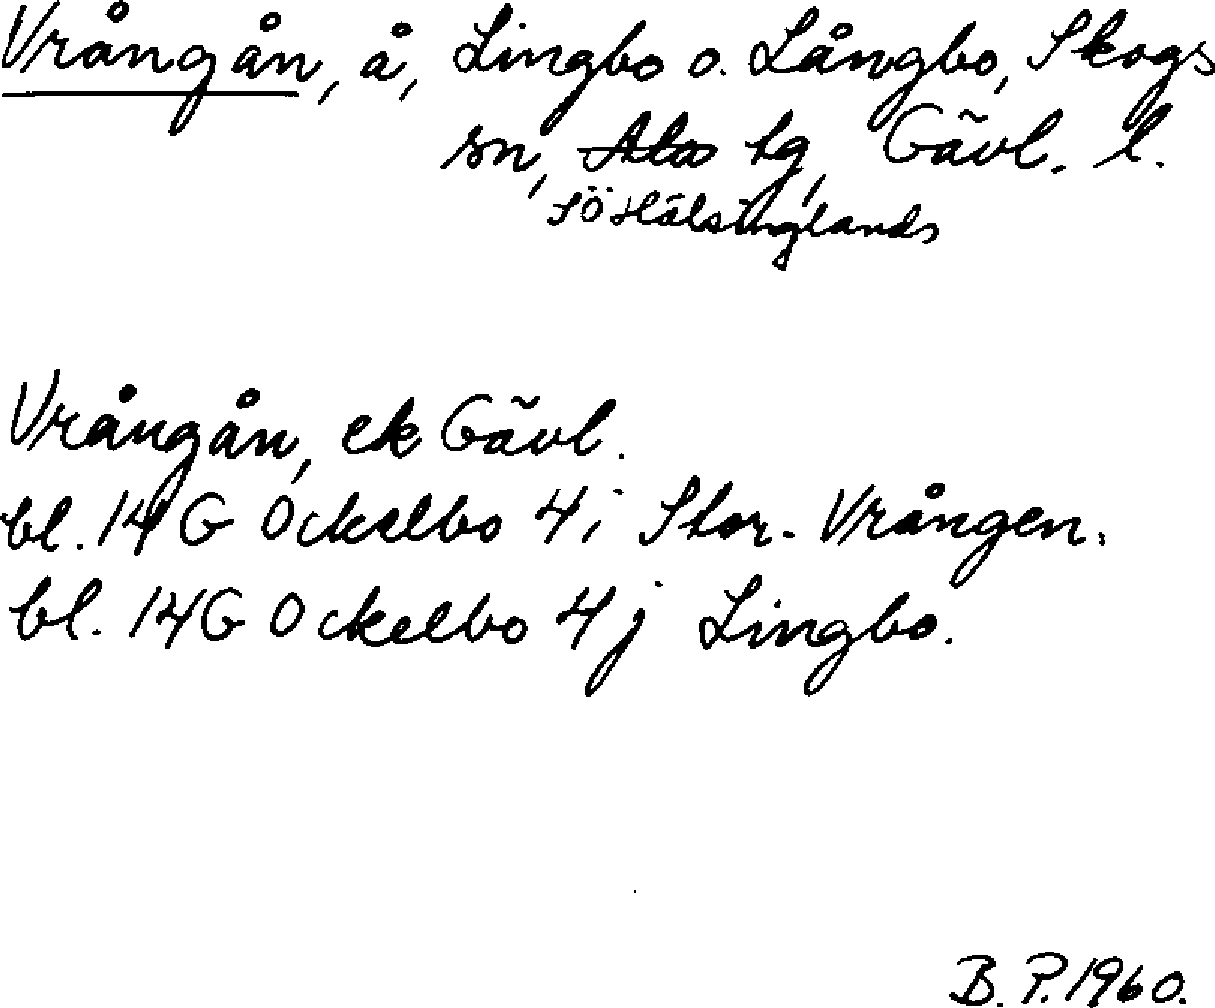 Vrångån, å, Lingbo o. Långbo, Skogs
sn, Ala tg, Gävl. l.
sö Hälsinglands
Vrångån, ek Gävl.
bl. 14G Ockelbo 4i Stor-Vrången.
bl. 14G Ockelbo 4j Lingbo.
B. P. 1960.